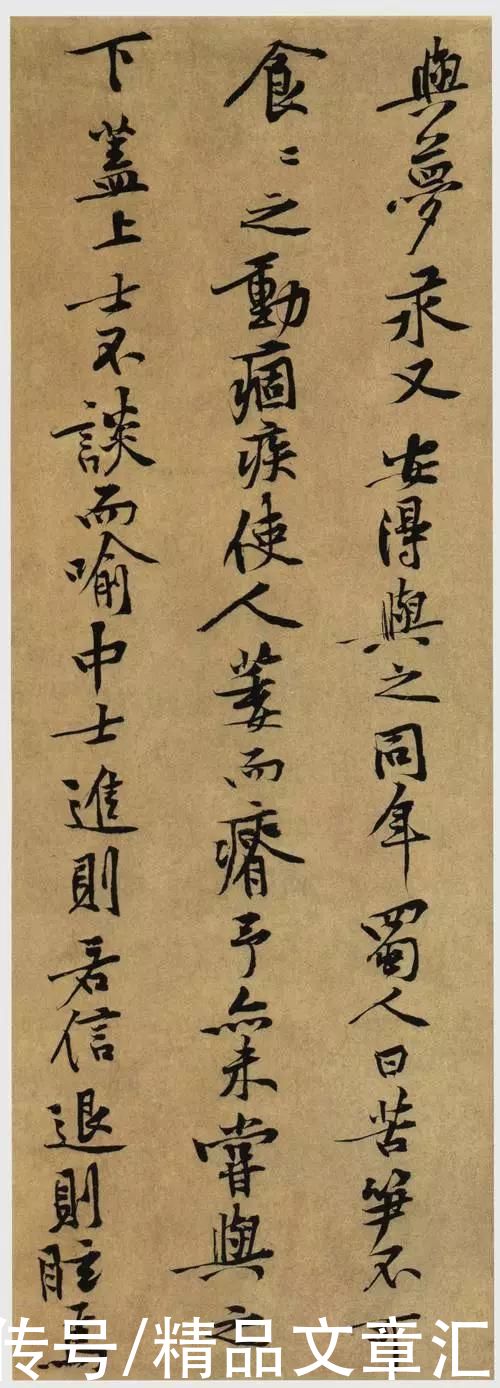 與夢汞又安得與之同年蜀人曰苦笋不可
食〻之動痼疾使人萎而瘠予亦未嘗與之
下蓋上士不談而喻中士進則若信退則眩焉
传号/精品文章汇